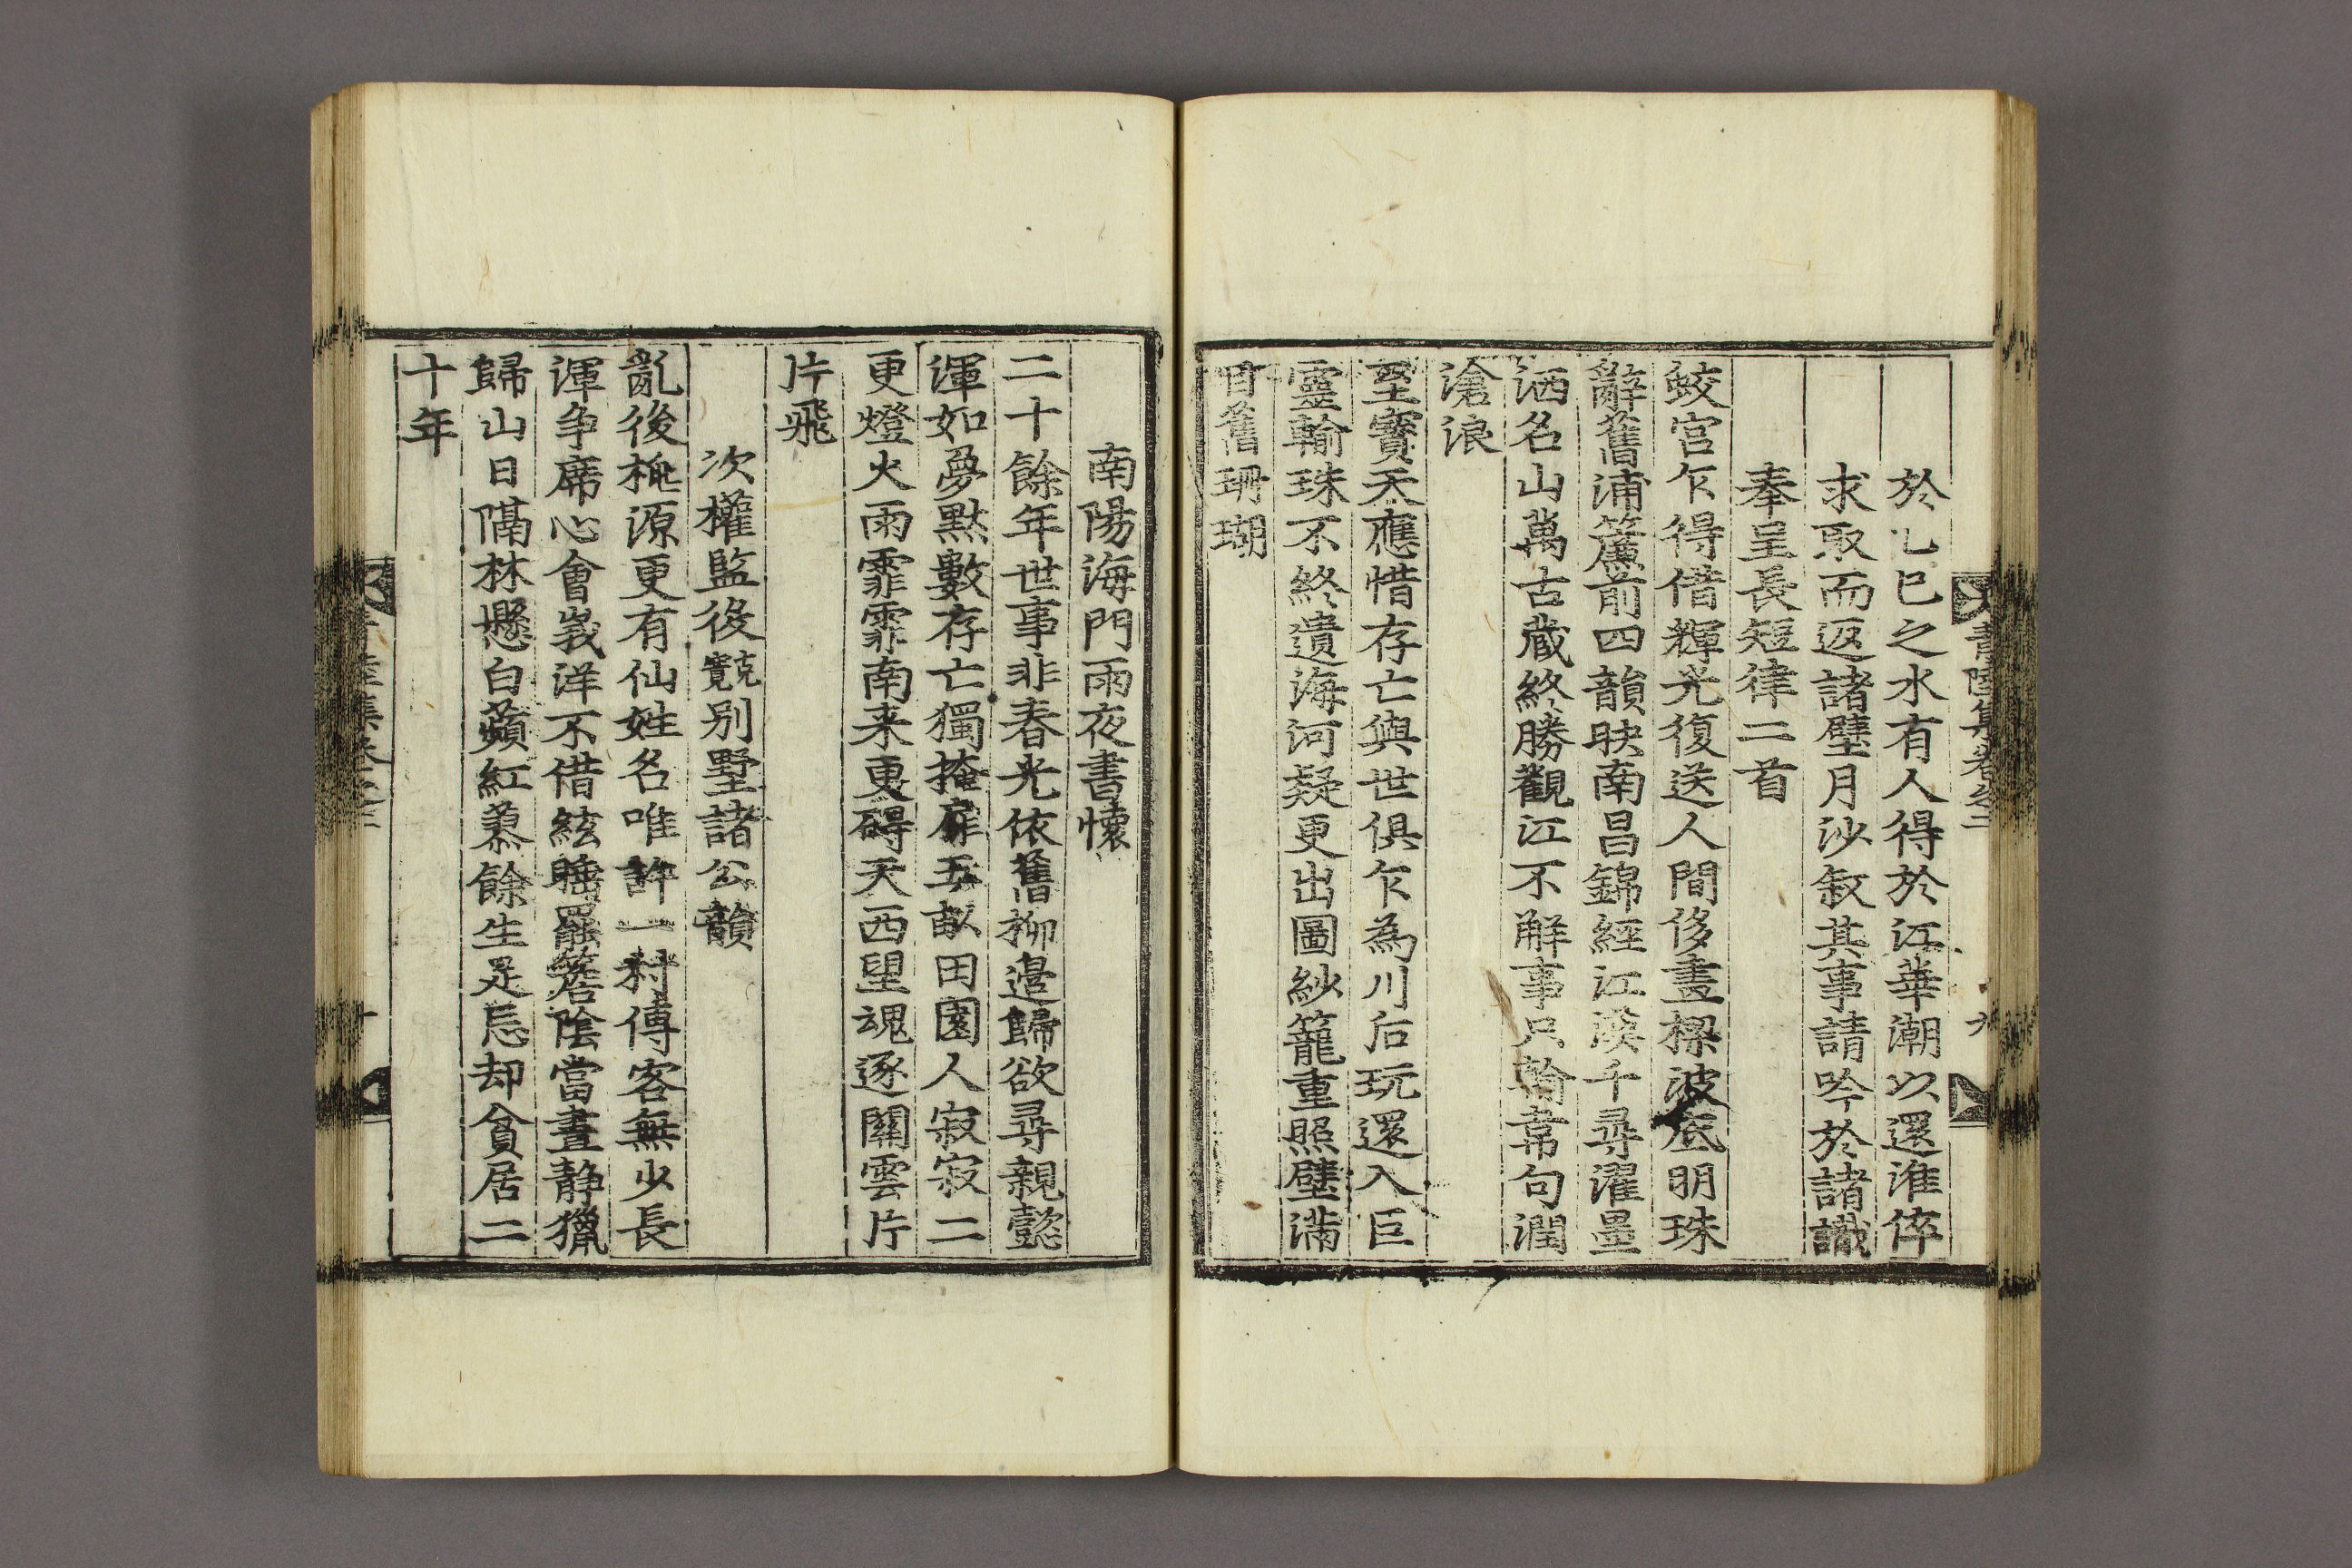 於乙巳之水有人得於江華潮以還淮倅
求取而返諸壁月沙叙其事請吟於諸識
奉呈長短律二首
鮫宮乍得借輝光復送人間侈畫樑波底明珠
辭舊浦簾前四韻映南昌錦經江漢千尋濯墨
洒名山萬古藏終勝觀江不解事只輸韋句潤
滄浪
至寶天應惜存亡與世俱乍為川后玩還入巨
靈輸珠不終遺海河疑更出圖紗籠重照壁滿
目舊珊瑚
南陽海門雨夜書懷
二十餘年世事非春光依舊柳邊歸欲尋親懿
渾如夢默數存亡獨掩扉五畝田園人寂寂二
更燈火雨霏霏南来更碍天西望魂逐關雲片
片飛
次權監役克寬別墅諸公韻
亂後桃源更有仙姓名唯許一村傳客無少長
渾争席心會峩洋不借絃睡罷簷陰當晝静獵
歸山日隔林懸白蘋紅蓼餘生足忘却貧居二
十年
集卷之二
九
集卷之二
十